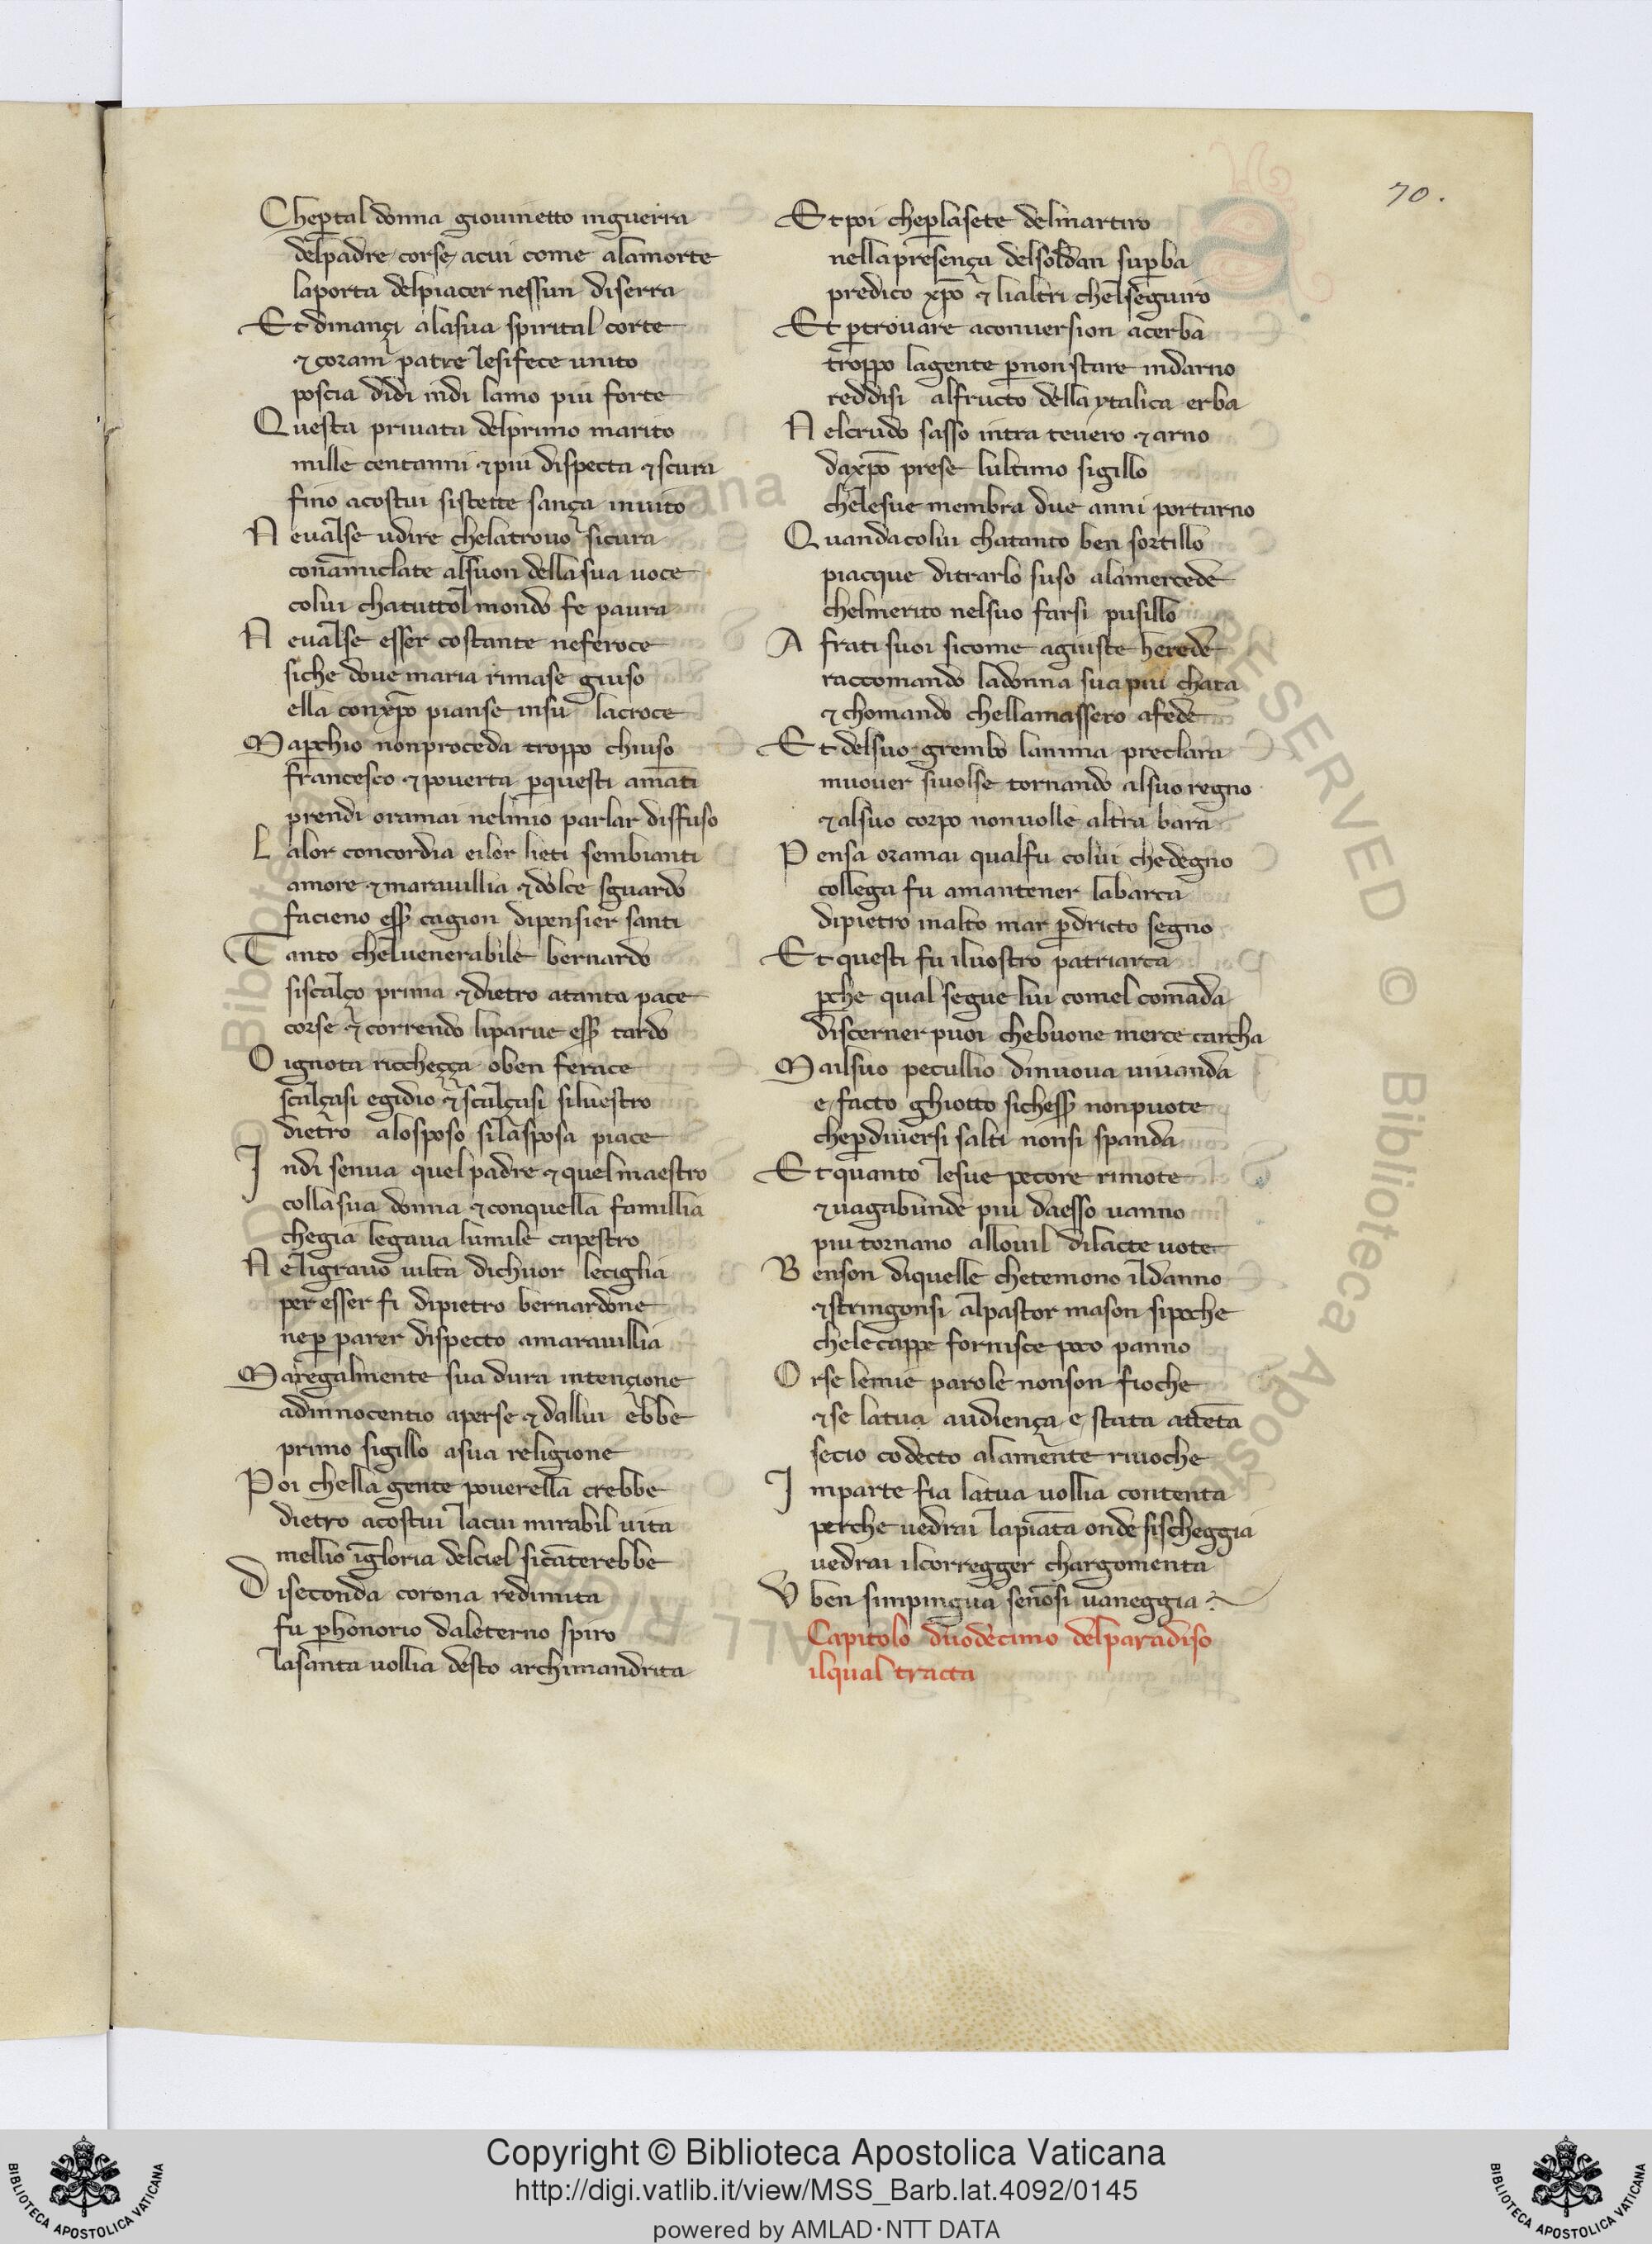 70.
Cheꝑtal donna giouinetto inguerra
delpadre corse acui come alamorte
laporta delpiacer nessun diserra
Et dinançi alasua spirital corte
⁊ coram patre lesifece unito
poscia didi indi lamo piu forte
Questa priuata delprimo marito
mille centanni ⁊ piu dispecta ⁊ scura
fino acostui sistette sança inuito
Neualse udire chelatrouo sicura
conamiclate alsuon della sua uoce
colui chatuttol mondo fe paura
Neualse esser costante neferoce
siche doue maria rimase giuso
ella conxp̄o pianse insu lacroce
Maꝑchio nonproceda troppo chiuso
francesco ⁊ pouerta ꝑquesti amāti
prendi oramai nelmio parlar diffuso
Lalor concordia eilor lieti sembianti
amore ⁊ marauillia ⁊ dolce sguardo
facieno esser cagion dipensier santi
Tanto cheluenerabile bernardo
siscalço prima ⁊ dietro atanta pace
corse ⁊ correndo liparue esser tardo
O ignota riccheçça oben ferace
scalçasi egidio ⁊ scalçasi siluestro
dietro alosposo silasposa piace
Indi senua quel padre ⁊ quel maestro
colla sua donna ⁊ conquella famillia
chegia legaua lumile capestro
Neligrauo uilta dichuor leciglia
per esser fi dipietro bernardone
neꝑ parer dispecto amarauillia
Maregalmente sua dura intençione
adinnocentio aperse ⁊ dallui ebbe
primo sigillo asua religione
Poi chella gente pouerella crebbe
dietro acostui lacui mirabil uita
mellio īgloria delciel sicāterebbe
Diseconda corona redimita
fu ꝑhonorio daleterno spiro
lasanta uollia desto archimandrita
Et poi cheꝑlasete delmartiro
nella presença delsoldan suꝑba
predico xp̄o ⁊ lialtri chelseguiro
Et ꝑtrouare aconuersion acerba
troppo lagente ꝑnon stare indarno
reddisi alfructo della ytalica erba
Nelcrudo sasso intra teuero ⁊ arno
daxp̄o prese lultimo sigillo
chelesue membra due anni portarno
Quandacolui chatanto ben sortillo
piacque ditrarlo suso alamercede
chelmerito nelsuo farsi pusillo
A frati suoi sicome agiuste herede
raccomando ladonna sua piu chara
⁊ chomando chellamassero afede
Et delsuo grembo lanima preclara
muouer siuolse tornando alsuo regno
⁊ alsuo corpo nonuolle altra bara
Pensa oramai qualfu colui chedegno
collega fu amantener labarca
dipietro inalto mar ꝑdricto segno
Et questi fu iluostro patriarca
ꝑche qual segue lui comel comāda
discerner puoi chebuone merce carcha
Mailsuo pecullio dinuoua uiuanda
e facto ghiotto sichesser nonpuote
cheꝑdiuersi salti nonsi spanda
Et quanto lesue pecore rimote
⁊ uagabunde piu daesso uanno
piu tornano allouil dilacte uote
Benson diquelle chetemono ildanno
⁊ stringonsi alpastor mason sipoche
chelecappe fornisce poco panno
Orse lemie parole nonson fioche
⁊ se latua audiença e stata attēta
secio codecto alamente riuoche
Inparte fia latua uollia contenta
perche uedrai lapiāta onde sischeggia
uedrai ilcorregger chargomenta
Uben simpingua senōsi uaneggia
Capitolo duodecimo delparadiso
ilqual tracta
Copyright © Biblioteca Apostolica Vaticana
http://digi.vatlib.it/view/MSS_Barb.lat.4092/0145
powered by AMLAD·NTT DATA
BIBLIOTECA APOSTOLICA VATICANA
BIBLIOTECA APOSTOLICA VATICANA